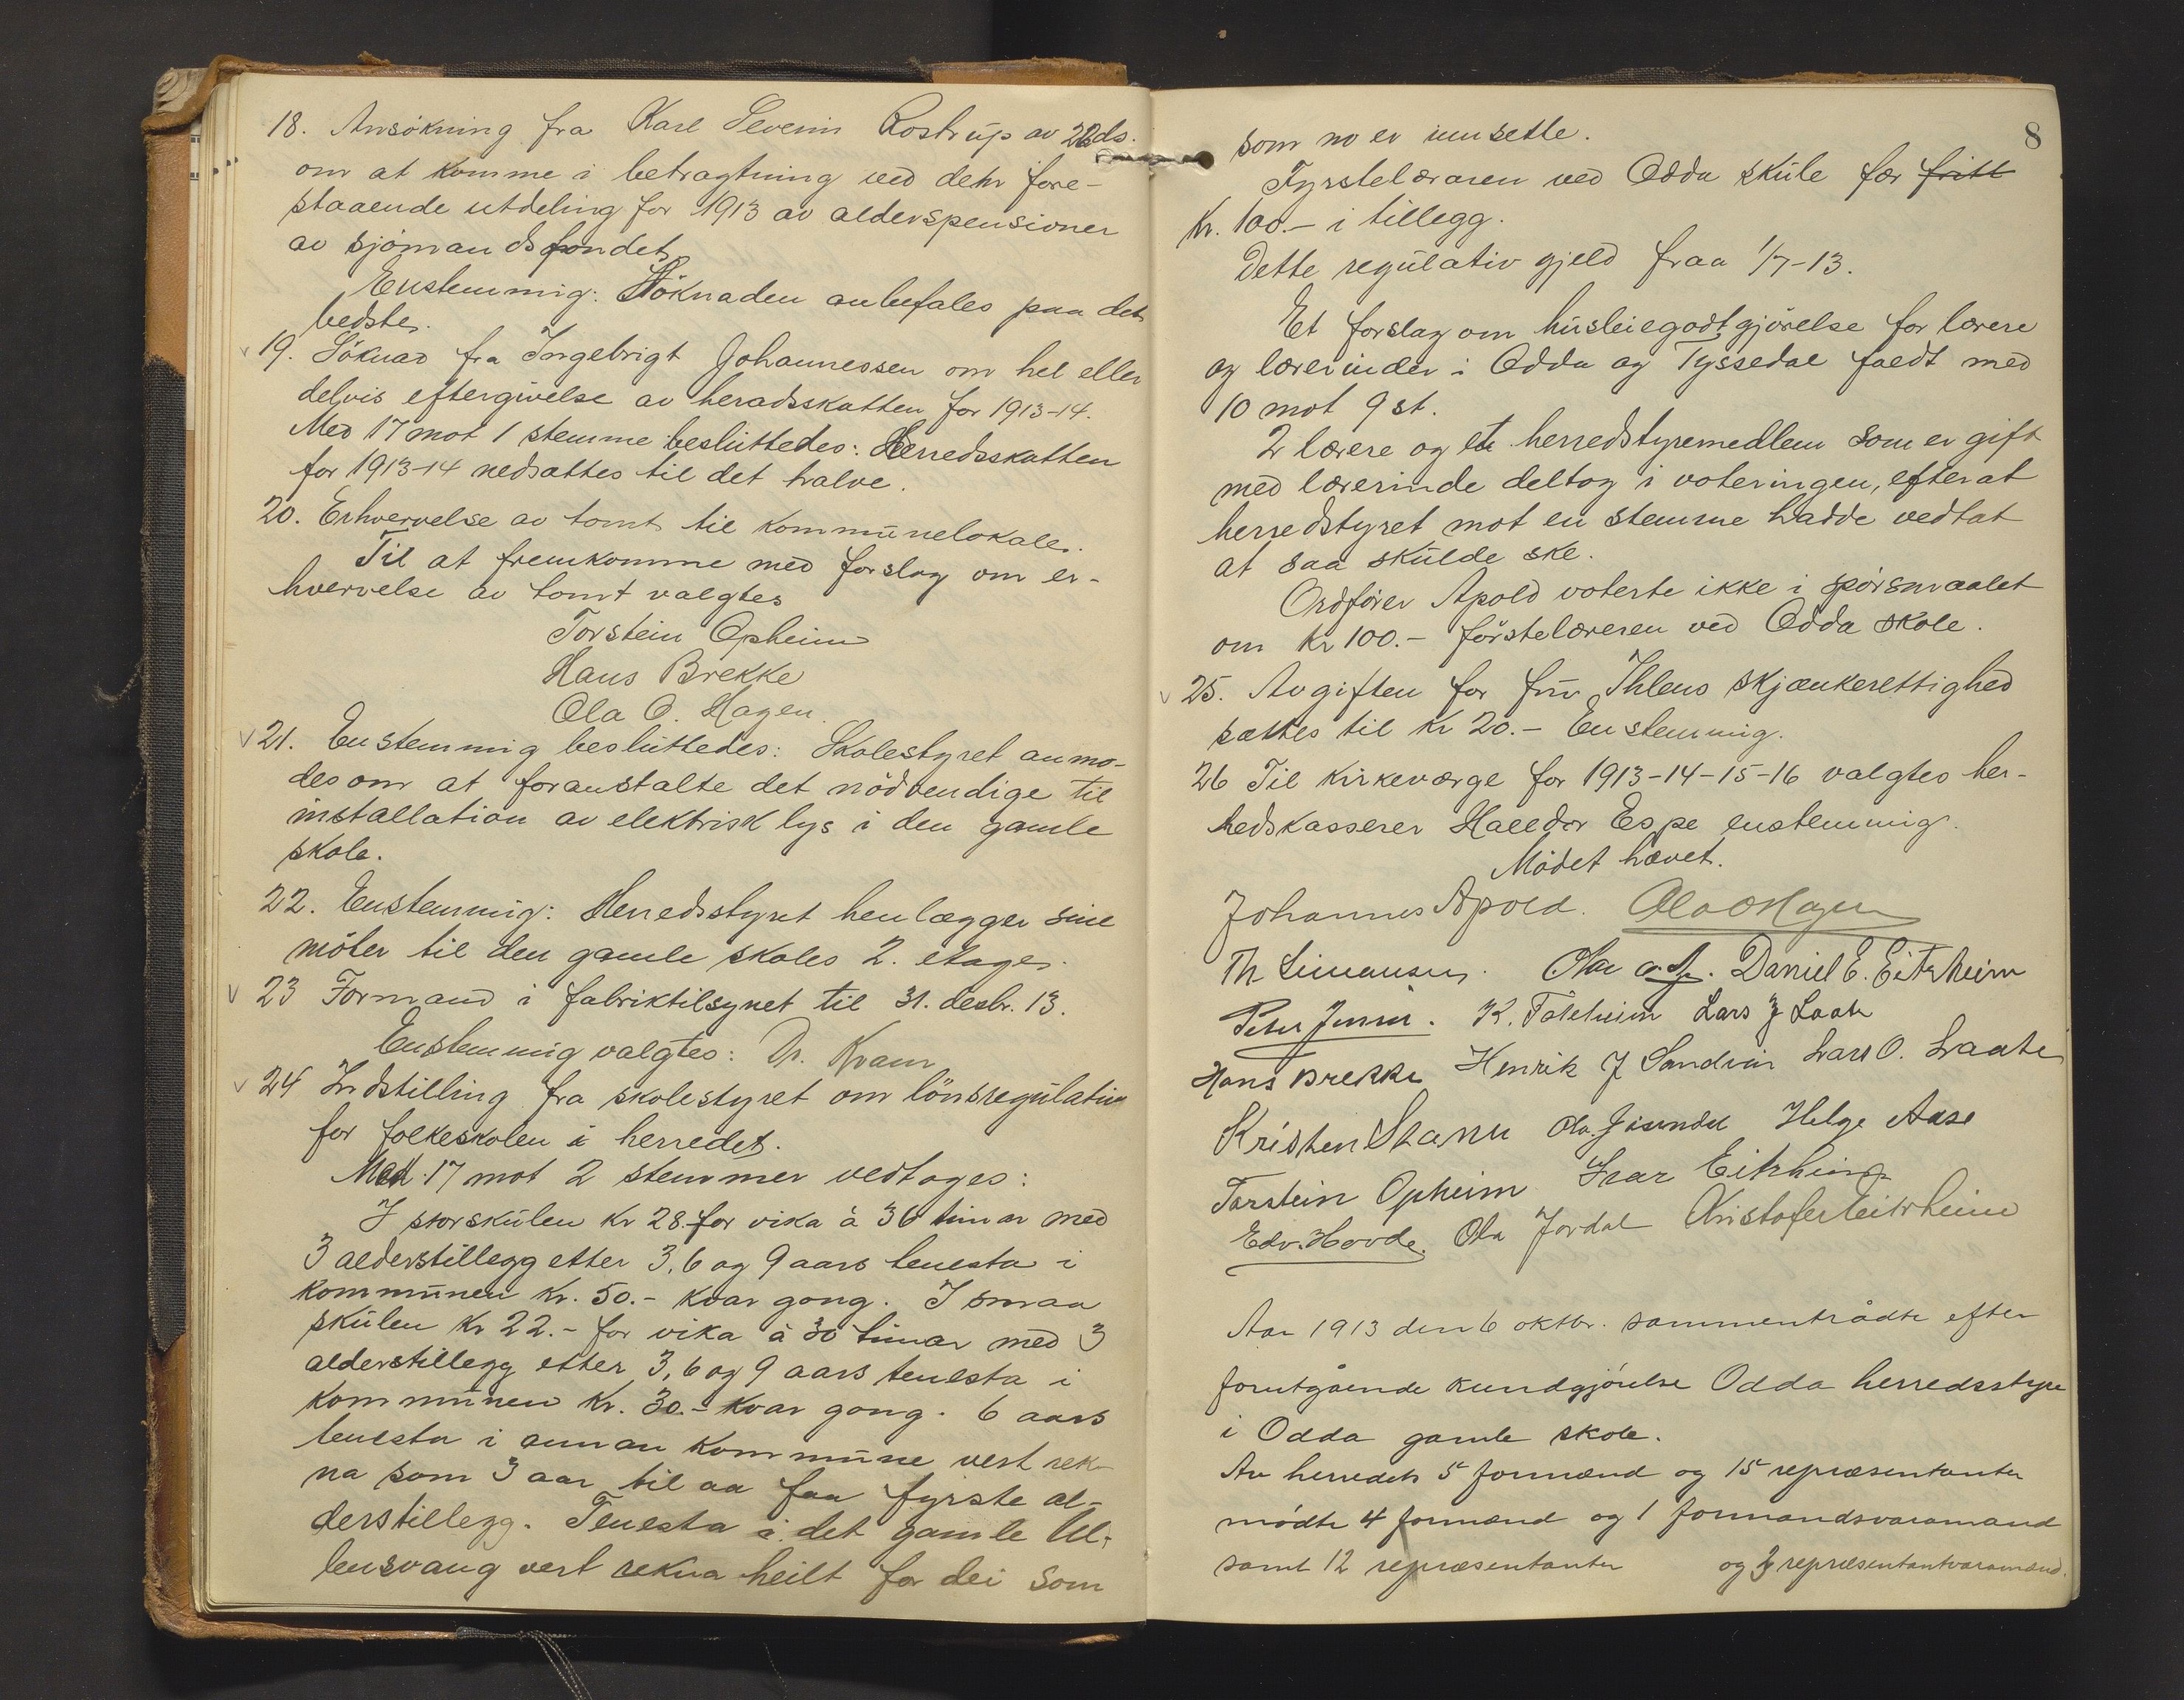 18. Ansökning fra Karl Severin Rostrup av 22 ds.
om at komme i betragtning ved den fore-
staaende utdeling for 1913 av alderspensioner
av sjömandsfondet.
Enstemmig: Söknaden anbefales paa det
bedste.
v 19. Söknad fra Ingebrigt Johannessen om hel eller
delvis eftergivelse av heradsskatten for 1913-14.
Med 17 mot 1 stemme besluttedes: Herredsskatten
for 1913-14 nedsattes til det halve.
20. Erhvervelse av tomt til kommunelokale.
Til at fremkomme med forslag om er-
hvervelse av tomt valgtes
Torstein Opheim
Hans Brekke
Ola O. Hagen.
v 21. Enstemmig besluttedes: Skolestyret anmo-
des om at foranstalte det nödvendige til
installation av elektrisk lys i den gamle
skole.
22. Enstemmig: Herredsstyret henlægger sine
möter til den gamle skoles 2. etage.
v 23 Formand i fabriktilsynet til 31. desbr. 13.
Enstemmig valgtes: Dr. Kvam
v 24 Indstilling fra skolestyret om lönsregulativ
for folkeskolen i herredet.
Med 17 mot 2 stemmer vedtages:
I storskulen kr 28.- for vika à 36 timar med
3 alderstillegg etter 3, 6 og 9 aars tenesta i
kommunen kr. 50.- kvar gong. I smaa
skulen kr 22.- for vika à 30 timar med 3
alderstillegg etter 3, 6 og 9 aars tenesta i
kommunen kr. 30.- kvar gong. 6 aars
tenesta i annan kommune vert rek-
na som 3 aar til aa faa fyrste al-
derstillegg. Tenesta i det gamle Ul-
lensvang vert rekna heilt for dei som
8
som no er innsette.
Fyrstelæraren ved Odda skule fær fritt
kr. 100.- i tillegg.
Dette regulativ gjeld fraa 1/7-13.
Et forslag om husleiegodtgjörelse for lærere
og lærerinder i Odda og Tyssedal faldt med
10 mot 9 st.
2 lærere og et herredstyremedlem som er gift
med lærerinde deltog i voteringen, efterat
herredstyret mot en stemme hadde vedtat
at saa skulde ske.
Ordförer Apold voterte ikke i spörsmaalet
om kr 100.- förstelæreren ved Odda skole.
v 25. Avgiften for fru Ihlens skjænkerettighed
sættes til kr 20.- Enstemmig.
26 Til kirkeværge for 1913-14-15-16 valgtes her-
redskasserer Halldor Espe enstemmig.
Mödet hævet.
Johannes Apold. Ola O Hagen
Th Simonsen. Daniel E. Eitrheim
Peter Jensen. K. Tokheim Lars J Laate
Hans Brekke Henrik J Sandvin Lars O. Laate
Kristen Stana Helge Aase
Torstein Opheim Ivar Eitrheim
Edv. Hovde. Ola Jordal Kristofer Eitrheim
Aar 1913 den 6 oktbr. sammentrådte efter
forutgående kundgjörelse Odda herredsstyre
i Odda gamle skole.
Av herredets 5 formænd og 15 repræsentanter
mödte 4 formænd og 1 formandsvaramand
samt 12 repræsentanter og 3 repræsentantvaramænd.